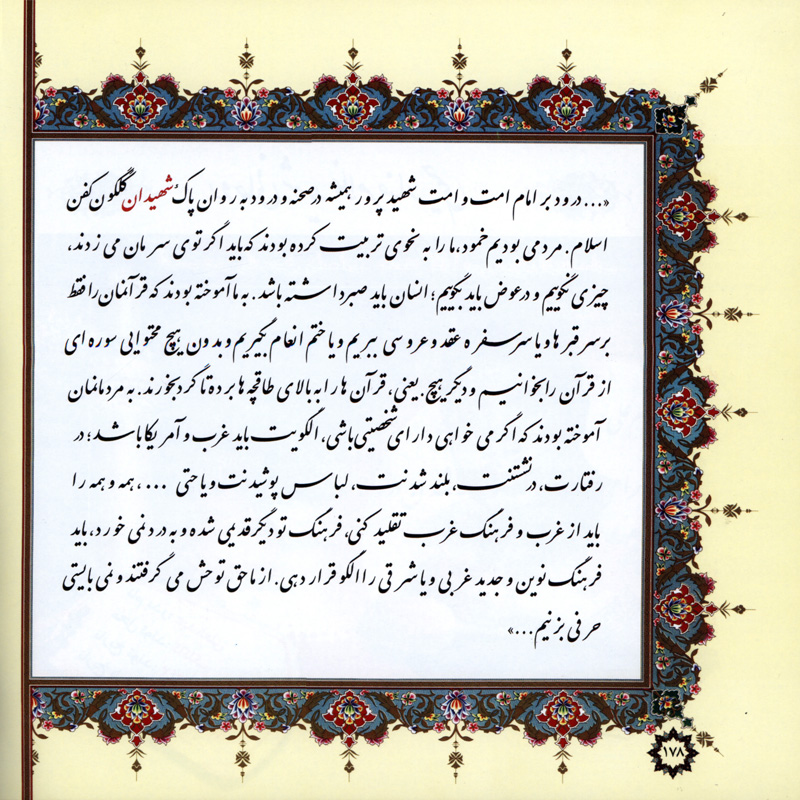 «... درود بر امام امت و امت شهید پرور همیشه در صحنه و درود به روان پاک شهیدان گلگون کفن
اسلام. مردمی بودیم خمود، ما را به نحوی تربیت کرده بودند که باید اگر توی سرمان می زدند،
چیزی نگوییم و در عوض باید بگوییم؛ انسان باید صبر داشته باشد. به ما آموخته بودند که قرآنمان را فقط
بر سر قبرها و یا سر سفره عقد و عروسی ببریم و یا ختم انعام بگیریم و بدون هیچ محتوایی سوره ای
از قرآن را بخوانیم و دیگر هیچ. یعنی، قرآن ها را به بالای طاقچه ها برده تا گرد بخورند. به مردمانمان
آموخته بودند که اگر می خواهی دارای شخصیتی باشی، الگویت باید غرب و آمریکا باشد؛ در
رفتارت، در نشستنت، بلند شدنت، لباس پوشیدنت و یا حتی ...، همه و همه را
باید از غرب و فرهنگ غرب تقلید کنی، فرهنگ تو دیگر قدیمی شده و به درد نمی خورد، باید
فرهنگ نوین و جدید غربی و یا شرقی را الگو قرار دهی. از ما حق توحش می گرفتند و نمی بایستی
حرفی بزنیم...»
۱۷۸